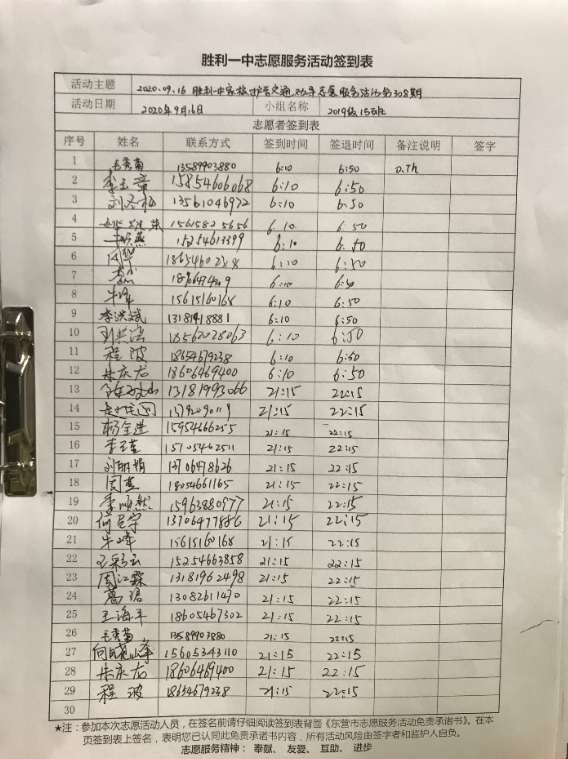 胜利一中志愿服务活动签到表
活动主题 2020.09.16 胜利一中家校护苗交通 志愿服务活动第308期
活动日期 2020年9月16日 小组名称 2019级15班
志愿者签到表
序号 姓名 联系方式 签到时间 签退时间 备注说明 签字
1 13589903880 6:10 6:50 0.7h
2 15854606068 6:10 6:50
3 13561046972 6:10 6:50
4 6:10 6:50
5 15254613399 6:10 6:50
6 6:10 6:50
7 6:10
8 牛峰 15615160168 6:10 6:50
9 李洪斌 13181418881 6:10 6:50
10 18562028063 6:10 6:50
11 程波 18654679238 6:10 6:50
12 朱庆龙 18606469400 6:10 6:50
13 13181993066 21:15 22:15
14 21:15 22:15
15 杨全进 15954666255 21:15 22:15
16 15705462511 21:15 22:15
17 刘丽娟 13706478626 21:15 22:15
18 18054661165 21:15 22:15
19 李顺然 15963880977 21:15 22:15
20 13706477886 21:15 22:15
21 牛峰 15615160168 21:15 22:15
22 王彩云 15254663858 21:15 22:15
23 周江霖 13181962498 21:15 22:15
24 葛珺 13082611470 21:15 22:15
25 王海平 18605467302 21:15 22:15
26 13589903880 21:15 22:15
27 15605343110 21:15 22:15
28 朱庆龙 18606469400 21:15 22:15
29 程波 18654679238 21:15 22:15
30
★注：参加本次志愿活动人员，在签名前请仔细阅读签到表背面《东营市志愿服务活动免责承诺书》。在本
页签到表上签名，表明您已认同此免责承诺书内容，所有活动风险由签字者和监护人自负。
志愿服务精神：奉献、友爱、互助、进步